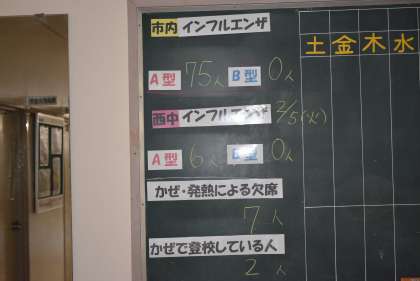 市内 インフルエンザ
A型 75人 B型 0人
西中 インフルエンザ 2/5(火)
A型 6人 B型 0人
かぜ・発熱による欠席
7人
かぜで登校している人
2人
土 金 木 水